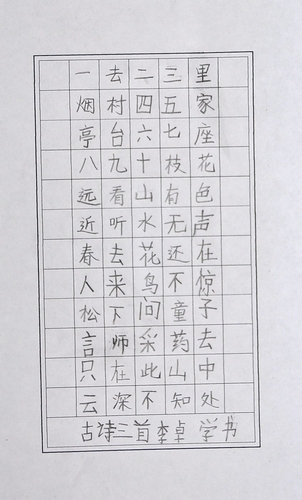 一去二三里
烟村四五家
亭台六七座
八九十枝花
远看山有色
近听水无声
春去花还在
人来鸟不惊
松下问童子
言师采药去
只在此山中
云深不知处
古诗三首李卓学书